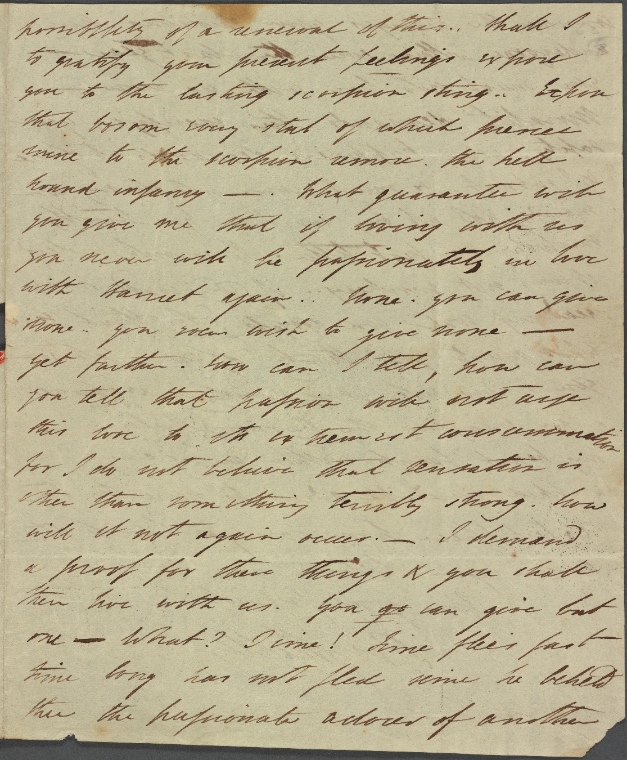 possibility of a renewal of this.. Shall I
to gratify your present feelings expose
you to the lasting scorpion sting.. Expose
that bosom every stab of which pierces
mine to the scorpion remorse. the hell
hound infamy —. What guarantee will
you give me that if living with us
you never will be passionately in love
with Harriet again.. None. you can give
none. you even wish to give none —
yet farther. how can I tell, how can
you tell that passion will not urge
this love to its extremest consummation
for I do not believe that sensation is
other than something terribly strong. how
will it not again occur. — I demand
a proof for these things & you shall
then live with us. You can give but
one — What? Time! Time flies fast
time long has not fled since he beheld
thee the passionate adorer of another